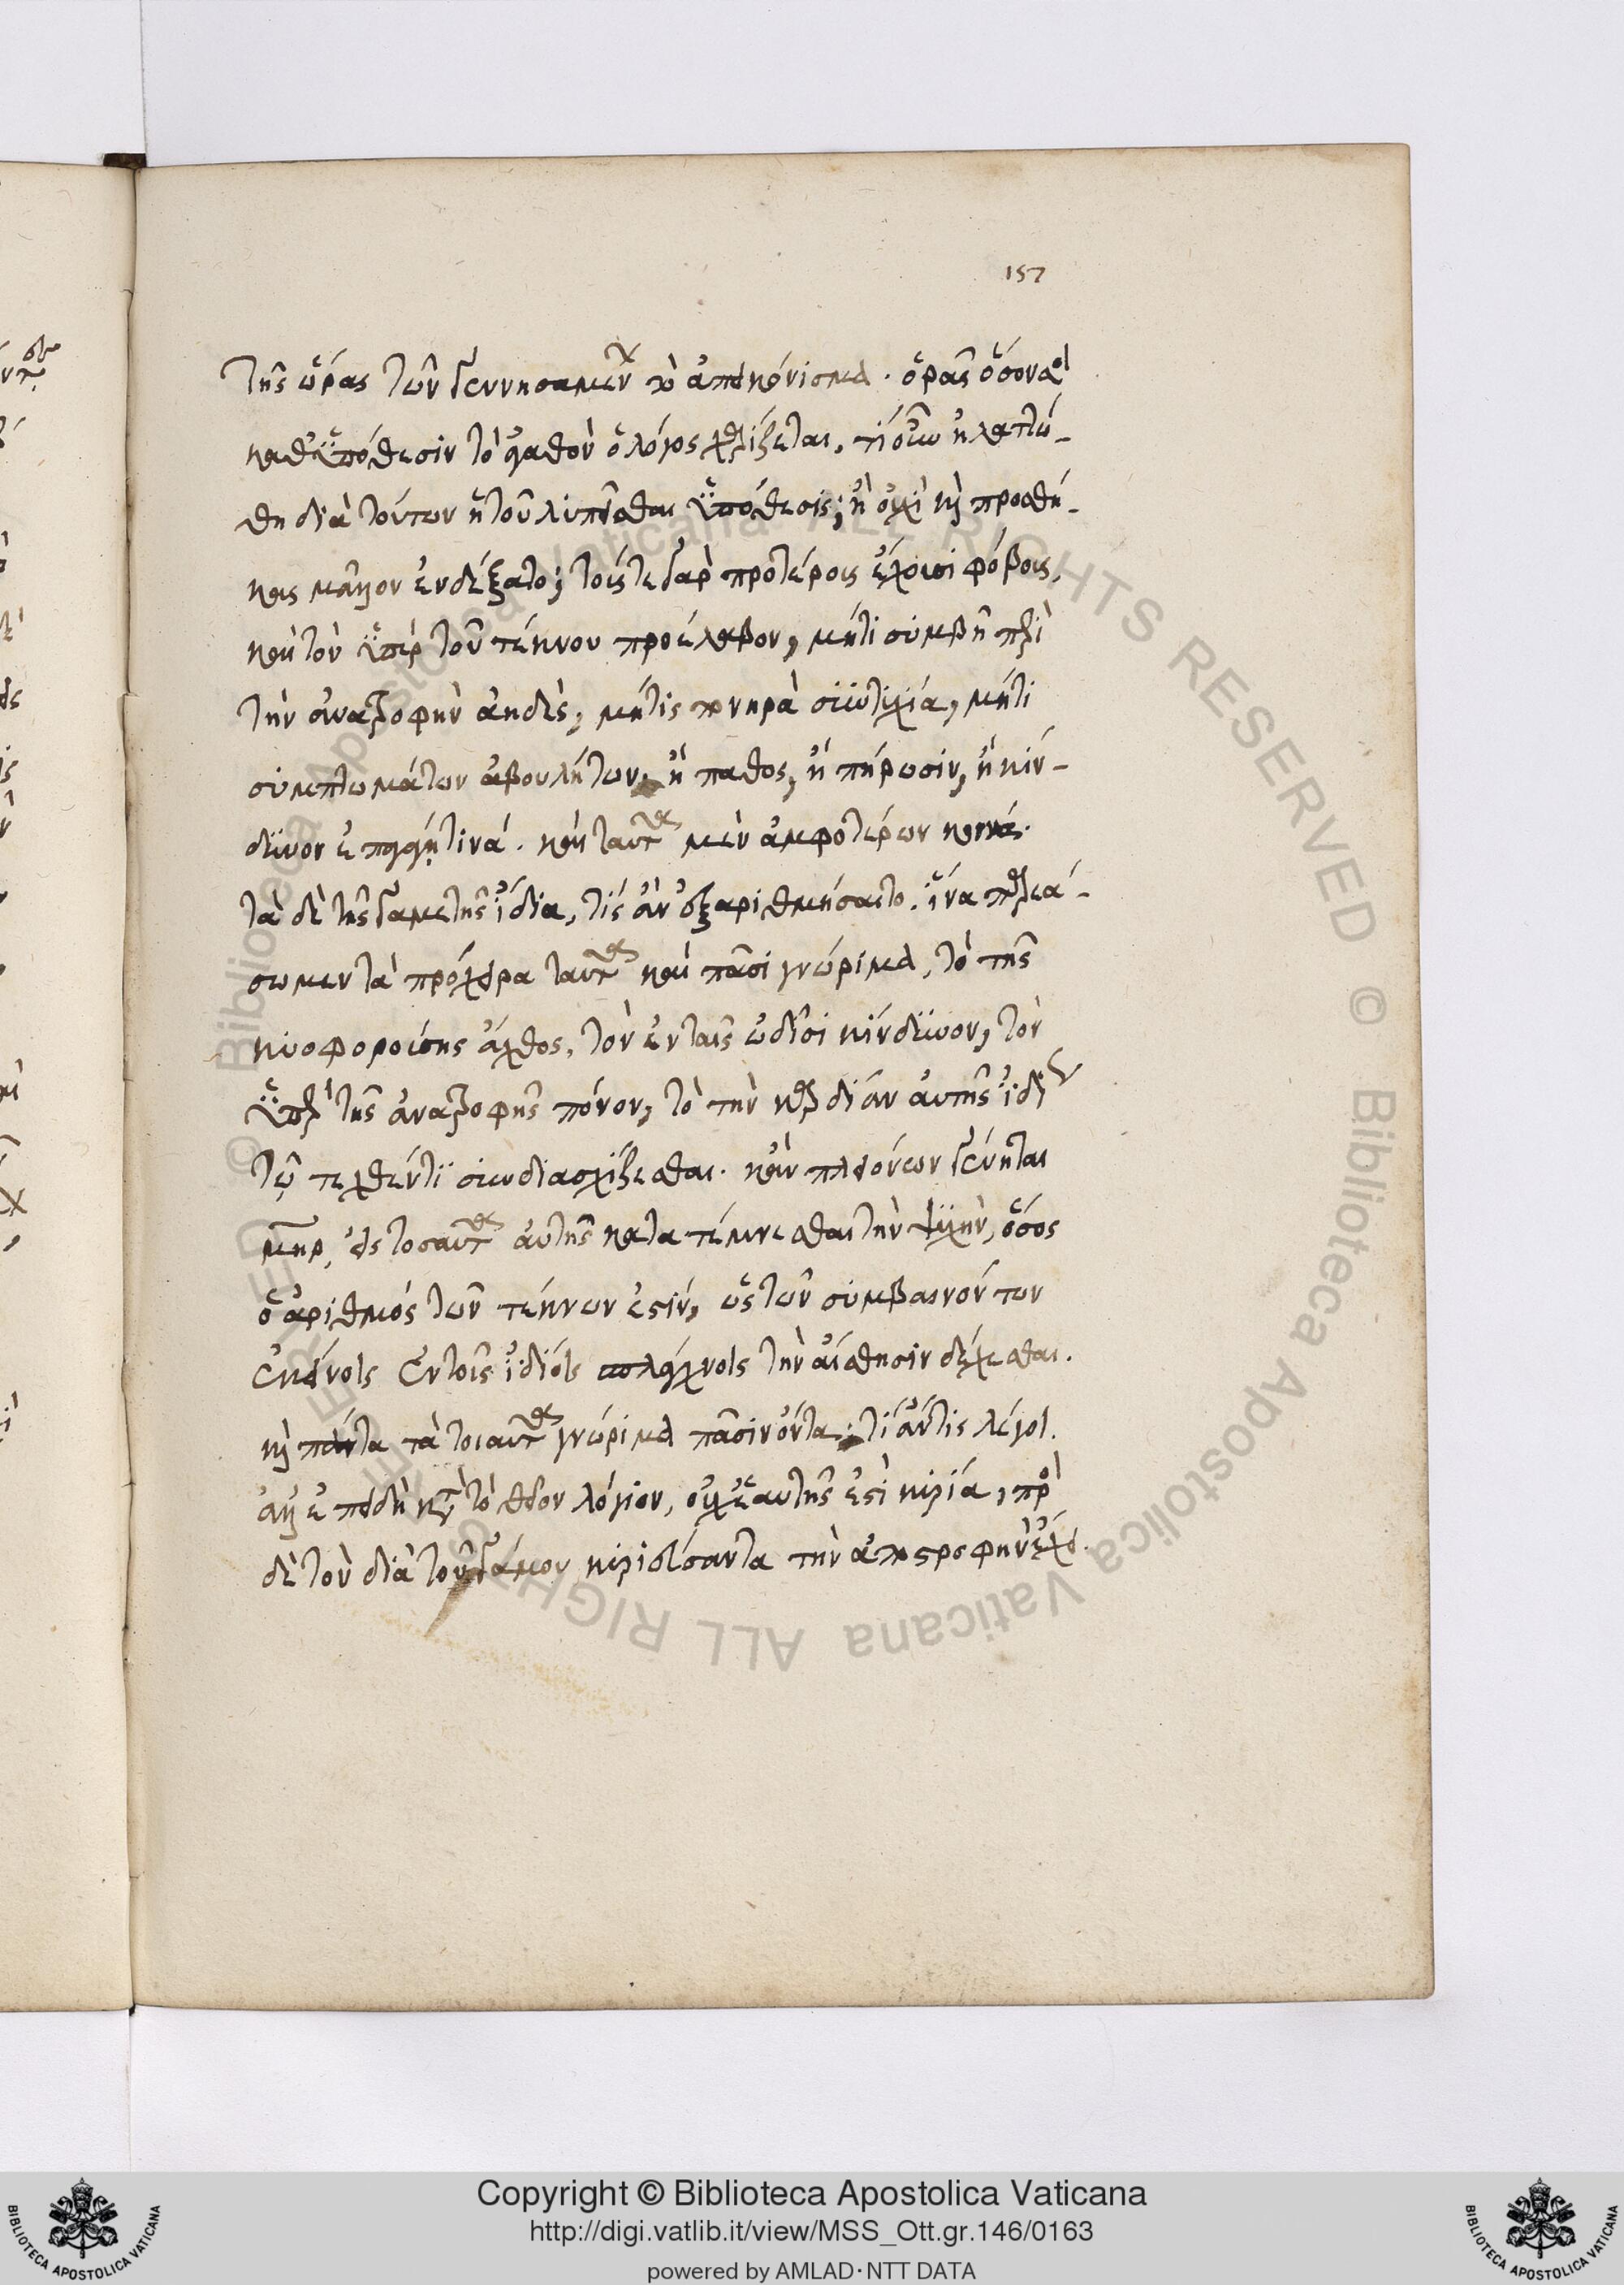 157
τῆς ὥρας τῶν γεννησαμένων τὸ ἀπεικόνισμα. ὁρᾶς ὅσον ἀεὶ
καθ' ὑπόθεσιν τὸ ἀγαθὸν ὁ λόγος χαρίζεται, τί οὖν ἠλαττώ-
θη διὰ τούτων ἡ τοῦ λυπεῖσθαι ὑπόθεσις; ἢ οὐχὶ καὶ προσθή-
κας μᾶλλον ἐνδέξατο; τοῖς τε γὰρ προτέροις ἔχουσι φόβοις,
καὶ τὸν ὑπὲρ τοῦ τέκνου προσέλαβον, μήτι συμβῇ περὶ
τὴν ἀναστροφὴν ἀηδὲς, μήτις πονηρὰ συντυχία, μήτι
συμπτωμάτων ἀβουλήτων, ἢ παθος, ἢ πήρωσιν, ἢ κίν-
δυνον ἐπαγάγῃ τινά. καὶ ταῦτα μὲν ἀμφοτέρων κοινά.
τὰ δὲ τῆς γαμετῆς ἴδια, τίς ἂν ἐξαριθμήσαιτο. ἵνα παρεά-
σωμεν τὰ πρόχειρα ταῦτα καὶ πᾶσι γνώριμα, τὸ τῆς
κυοφορούσης ἄχθος, τὸν ἐν ταῖς ὠδῖσι κίνδυνον, τὸν
ὑπὲρ τῆς ἀναστροφῆς πόνον, τὸ τὴν καρδίαν αὐτῆς ἰδίως
τῷ τεχθέντι συνδιασχίζεσθαι. κἂν πλειόνων γένηται
μήτηρ, εἰς τοσαῦτα αὐτῆς κατατέμνεσθαι τὴν ψυχὴν, ὅσος
ὁ ἀριθμὸς τῶν τέκνων ἐστίν, ὡς τῶν συμβαινόντων
ἐκείνοις ἐν τοῖς ἰδίοις σπλάγχνοις τὴν αἴσθησιν δέχεσθαι.
καὶ πάντα τὰ τοιαῦτα γνώριμα πᾶσιν ὄντα, τί ἄν τις λέγοι.
ἀλλ' ἐπειδὴ κατὰ τὸ θεῖον λόγιον, οὐχ ἑαυτῆς ἐστὶ κυρία, πρὸς
δὲ τὸν διὰ τοῦ γάμου κυριεύσαντα τὴν ἀποστροφὴν ἔχει.
Copyright © Biblioteca Apostolica Vaticana
http://digi.vatlib.it/view/MSS_Ott.gr.146/0163
powered by AMLAD·NTT DATA
BIBLIOTECA APOSTOLICA VATICANA
BIBLIOTECA APOSTOLICA VATICANA
© Biblioteca Apostolica Vaticana ALL RIGHTS RESERVED © Biblioteca Apostolica Vaticana ALL RIGHTS RESERVED